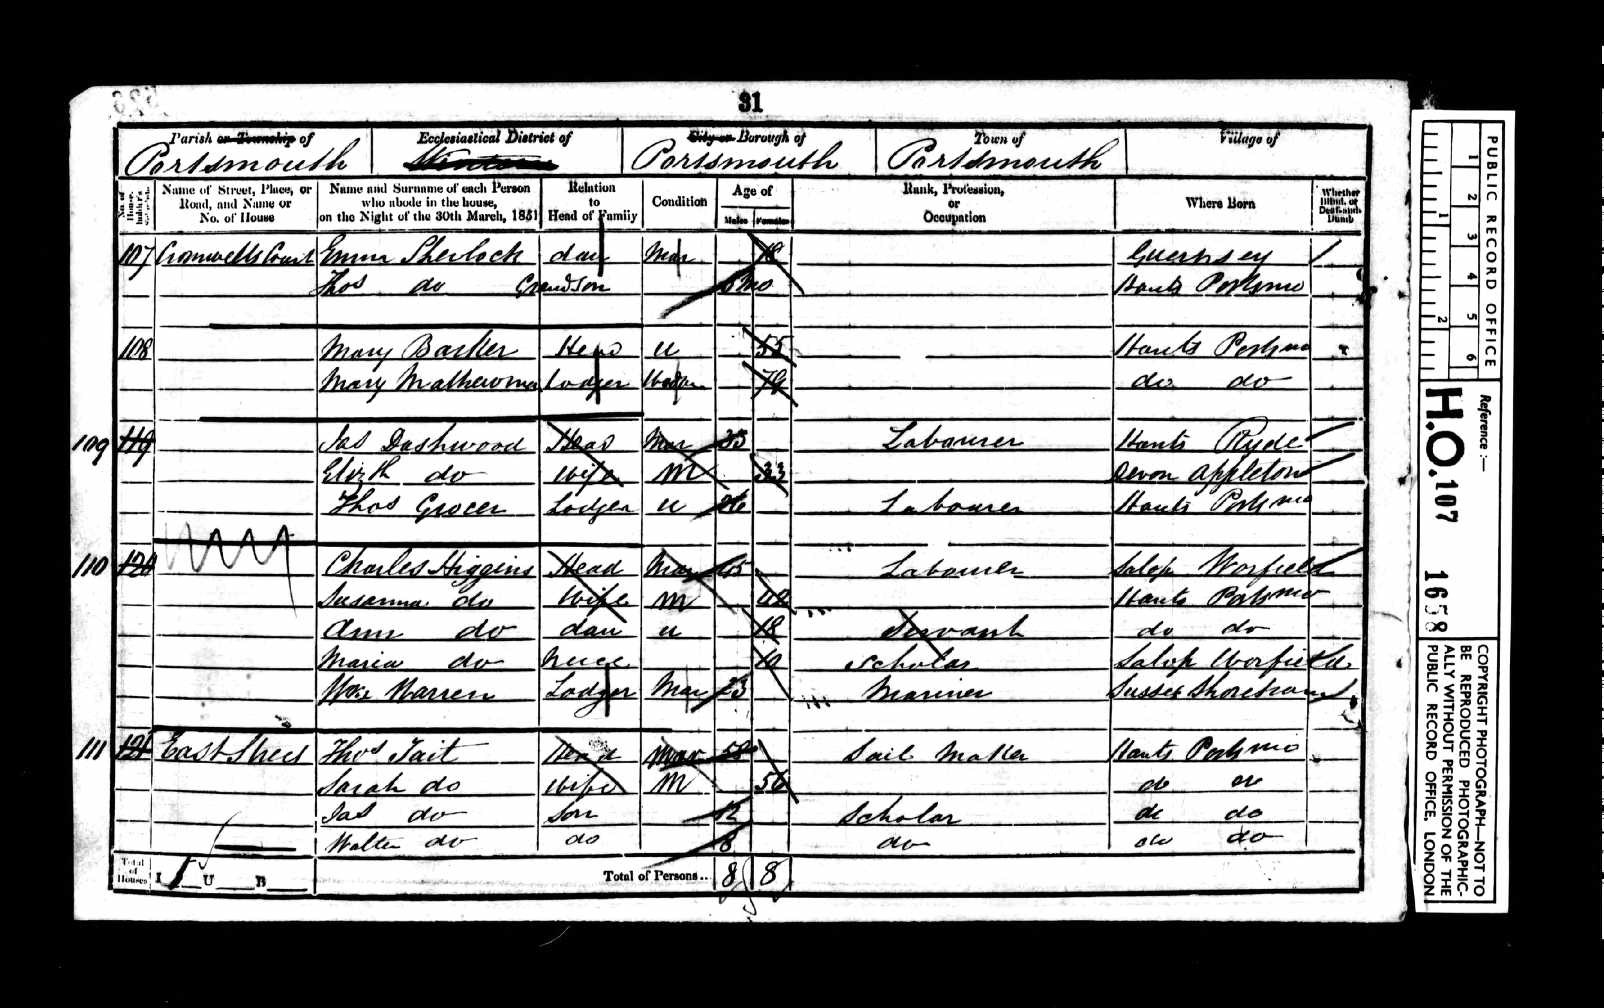 31
Parish or Township of Ecclesiastical District of City or Borough of Town of Village of
Portsmouth Portsmouth Portsmouth
Name of Street, Place, or Road, and Name or No. of House
Name and Surname of each Person who abode in the house, on the Night of the 30th March, 1851
Relation to Head of Family
Condition
Age of
Males Females
Rank, Profession, or Occupation
Where Born
Whether Blind, or Deaf-and-Dumb
107 Cromwells Court Emma Sherlock dau Mar 18 Guernsey
Thos do Grandson 6 mo Hants Portsmo
108 Mary Barker Head U 55 Hants Portsmo
Mary Lodger Widow do do
109 119 Jas Dashwood Head Mar Labourer Hants Ryde
Elizth do Wife M 33 Devon Appleton
Thos Grocer Lodger U 26 Labourer Hants Portsmo
110 120 Charles Higgins Head Mar 45 Labourer Salop Worfield
Susanna do Wife M 42 Hants Portsmo
Ann do dau U 18 Servant do do
Maria do Niece 10 Scholar Salop Worfield
Warren Lodger Mar 23 Mariner Sussex Shoreham
111 121 East Street Thos Tait Head Mar 58 Sail Maker Hants Portsmo
Sarah do Wife M 56 do do
Jas do Son 12 Scholar do do
Walter do do 8 do do do
Total of Houses I U B Total of Persons.. 8 8
PUBLIC RECORD OFFICE
1 2 3 4 5 6
1 2
Reference :-
H.O. 107
1658
COPYRIGHT PHOTOGRAPH—NOT TO
BE REPRODUCED PHOTOGRAPHIC-
ALLY WITHOUT PERMISSION OF THE
PUBLIC RECORD OFFICE, LONDON